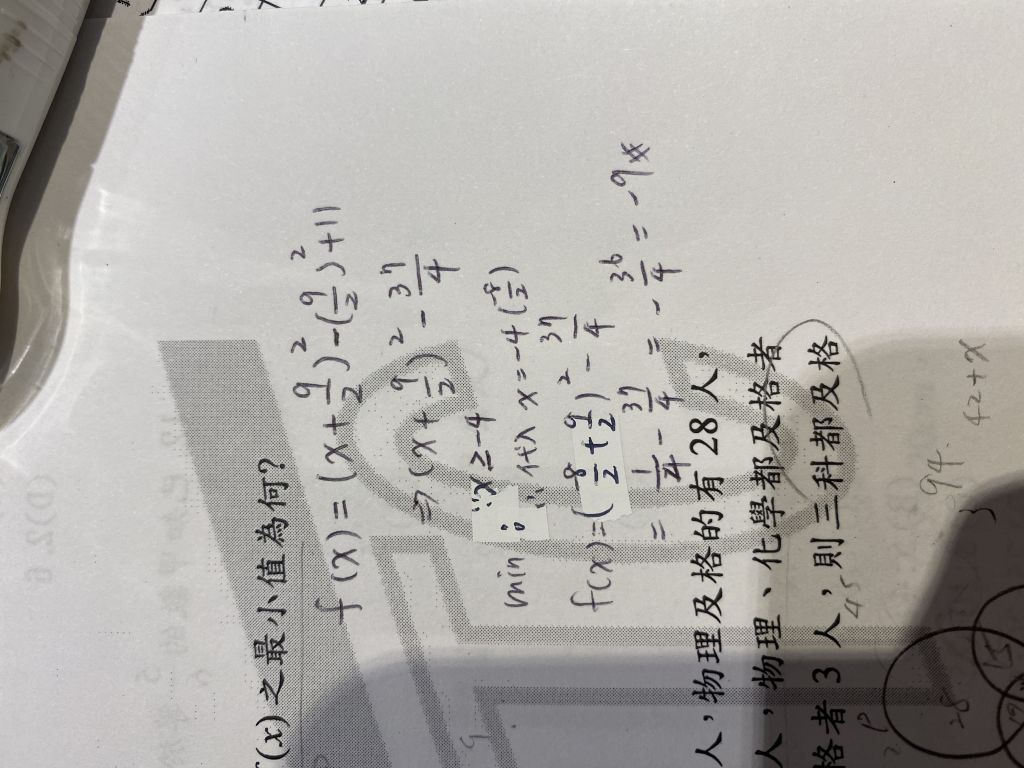 f(x) 之最小值為何?
f(x) = (x + 9/2)² - (9/2)² + 11
⇒ (x + 9/2)² - 37/4
min: ∵ x ≥ -4
∴ 代入 x = -4 (-8/2)
f(x) = (-8/2 + 9/2)² - 37/4
= 1/4 - 37/4 = -36/4 = -9
人,物理及格的有 28 人,
人,物理、化學都及格者
格者 3 人,則三科都及格
45
94
42+x
P
28
15
19
9
(D)2, 6